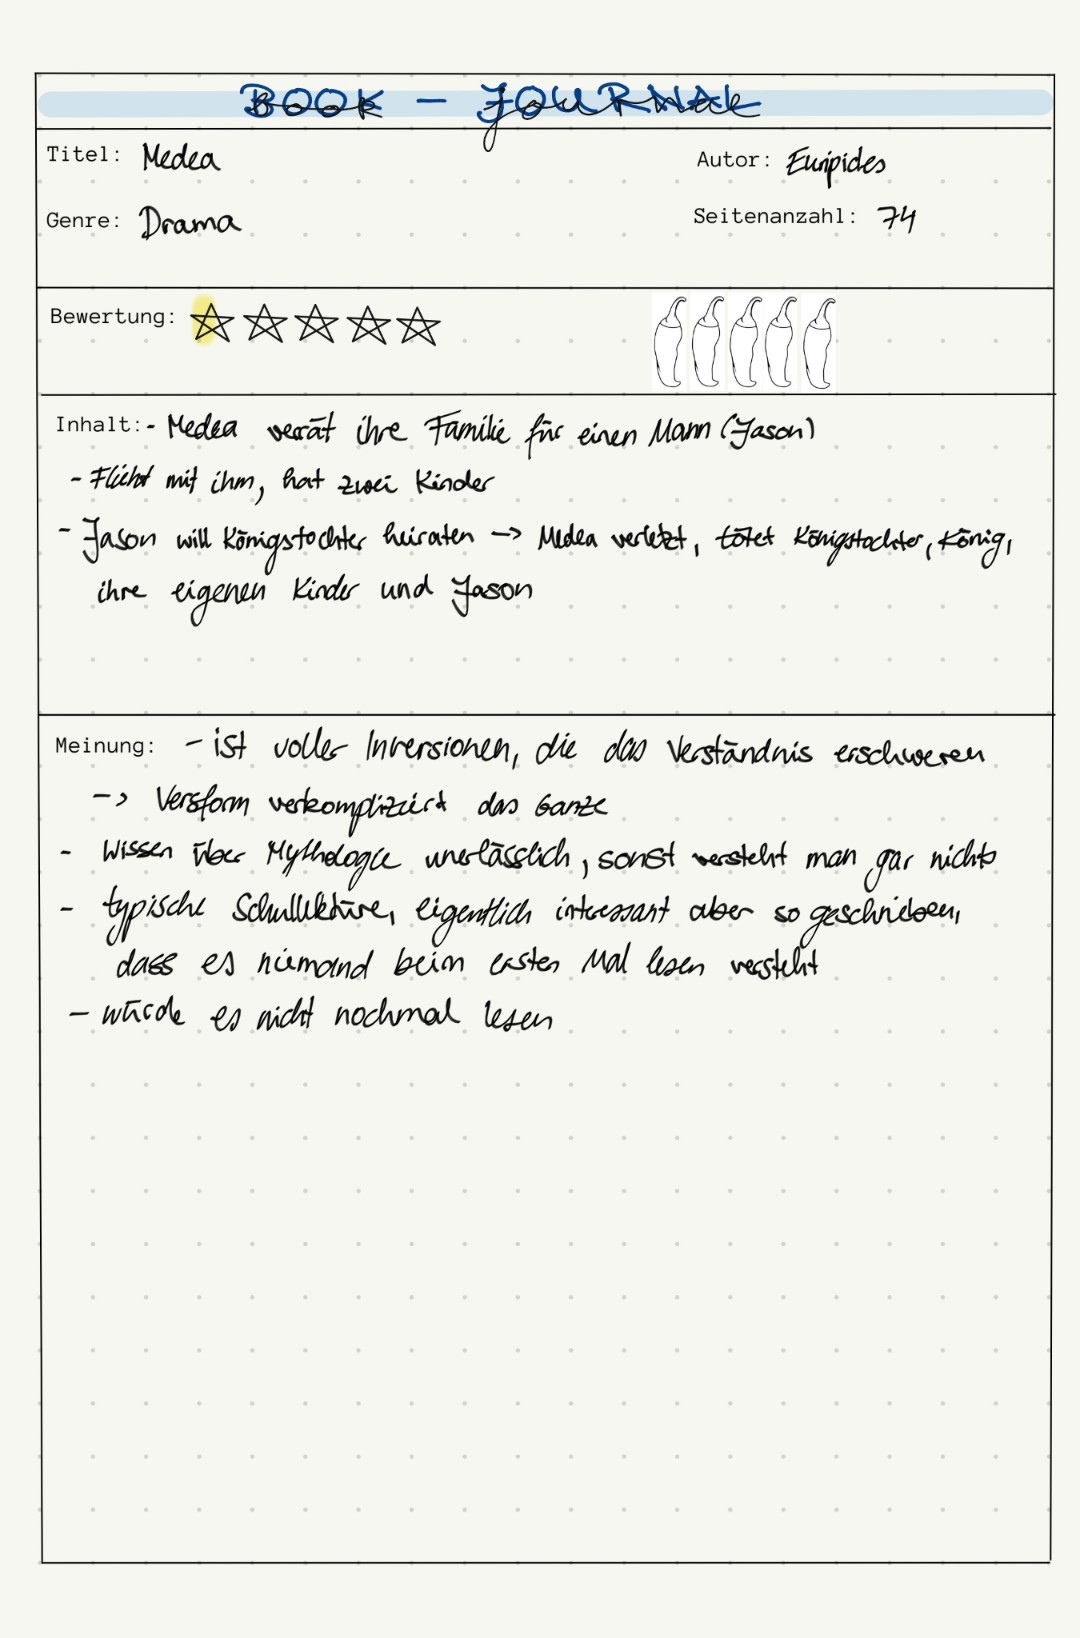 BOOK - JOURNAL
Titel: Medea
Autor: Euripides
Genre: Drama
Seitenanzahl: 74
Bewertung:
Inhalt: - Medea verrät ihre Familie für einen Mann (Jason)
- Flieht mit ihm, hat zwei Kinder
- Jason will Königstochter heiraten -> Medea verletzt, tötet Königstochter, König,
ihre eigenen Kinder und Jason
Meinung: - ist voller Inversionen, die das Verständnis erschweren
-> Versform verkompliziert das Ganze
- Wissen über Mythologie unerlässlich, sonst versteht man gar nichts
- typische Schullektüre, eigentlich interessant aber so geschrieben,
dass es niemand beim ersten Mal lesen versteht
- würde es nicht nochmal lesen